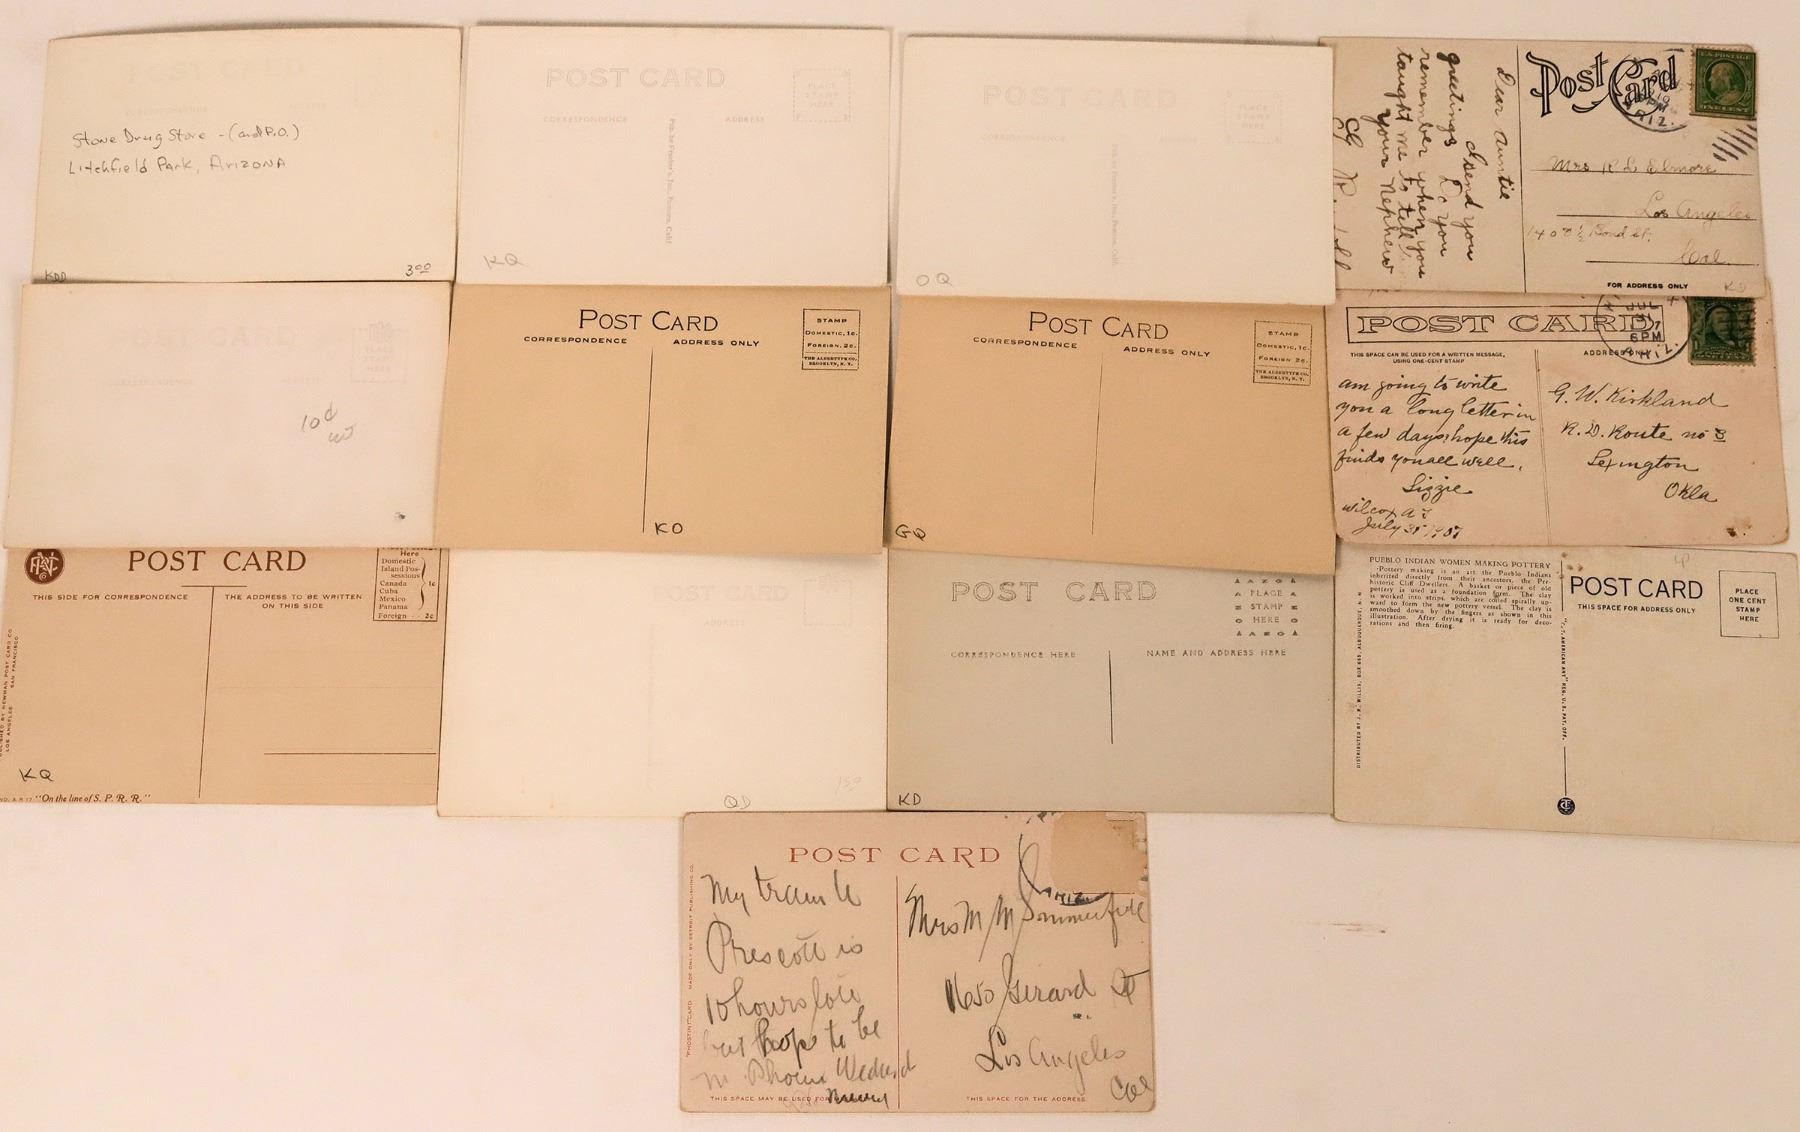 POST CARD
CORRESPONDENCE
ADDRESS
Stowe Drug Store - (and P.O.)
Litchfield Park, ARIZONA
KDD
3 00
POST CARD
PLACE
STAMP
HERE
CORRESPONDENCE
ADDRESS
KQ
POST CARD
PLACE
STAMP
HERE
OQ
Post Card
Dear Auntie
I send you
greetings Do you
remember when you
taught me to tell
your Nephew
10
PM
ARIZ.
U.S. POSTAGE
ONE CENT
Mrs R L Elmore
Los Angeles
1408 ½ Bond St.
Cal.
FOR ADDRESS ONLY
CARD
PLACE
STAMP
HERE
CORRESPONDENCE
10d
POST CARD
CORRESPONDENCE
ADDRESS ONLY
STAMP
DOMESTIC, 1c.
FOREIGN, 2c.
THE ALBERTYPE CO.
BROOKLYN, N.Y.
KO
POST CARD
CORRESPONDENCE
ADDRESS ONLY
STAMP
DOMESTIC, 1c.
FOREIGN 2c.
THE ALBERTYPE CO.
BROOKLYN, N.Y.
GQ
POST CARD
JUL
31
6 PM
ARIZ.
THIS SPACE CAN BE USED FOR A WRITTEN MESSAGE,
USING ONE-CENT STAMP
ADDRESS ONLY
am going to write
you a long letter in
a few days, hope this
finds you all well.
Lizzie
Wilcox A T
July 31 1907
G. W. Kirkland
R. D. Route no 3
Lexington
Okla
POST CARD
Here
Domestic
Island Pos-
sessions
Canada
Cuba
Mexico
Panama
1c
Foreign - - 2c
THIS SIDE FOR CORRESPONDENCE
THE ADDRESS TO BE WRITTEN
ON THIS SIDE
PUBLISHED BY NEWMAN POST CARD CO.
LOS ANGELES SAN FRANCISCO
KQ
"On the line of S. P. R. R."
POST CARD
ADDRESS
QD
150
POST CARD
PLACE
STAMP
HERE
AZO
CORRESPONDENCE HERE
NAME AND ADDRESS HERE
KD
PUEBLO INDIAN WOMEN MAKING POTTERY
Pottery making is an art the Pueblo Indians
inherited directly from their ancestors, the Pre-
historic Cliff Dwellers. A basket or piece of old
pottery is used as a foundation form. The clay
is worked into strips, which are coiled spirally up-
ward to form the new pottery vessel. The clay is
smoothed down by the fingers as shown in this
illustration. After drying it is ready for deco-
rations and then firing.
POST CARD
THIS SPACE FOR ADDRESS ONLY
PLACE
ONE CENT
STAMP
HERE
"C.T. AMERICAN ART" REG. U.S. PAT. OFF.
POST CARD
My train to
Prescott is
10 hours late
but hope to be
in Phoenix Wedensd
Mrs M M Sommerfield
1650 Girard St
Los Angeles
Cal
"PHOSTINT" CARD MADE ONLY BY DETROIT PUBLISHING CO.
THIS SPACE MAY BE USED FOR
THIS SPACE FOR THE ADDRESS.